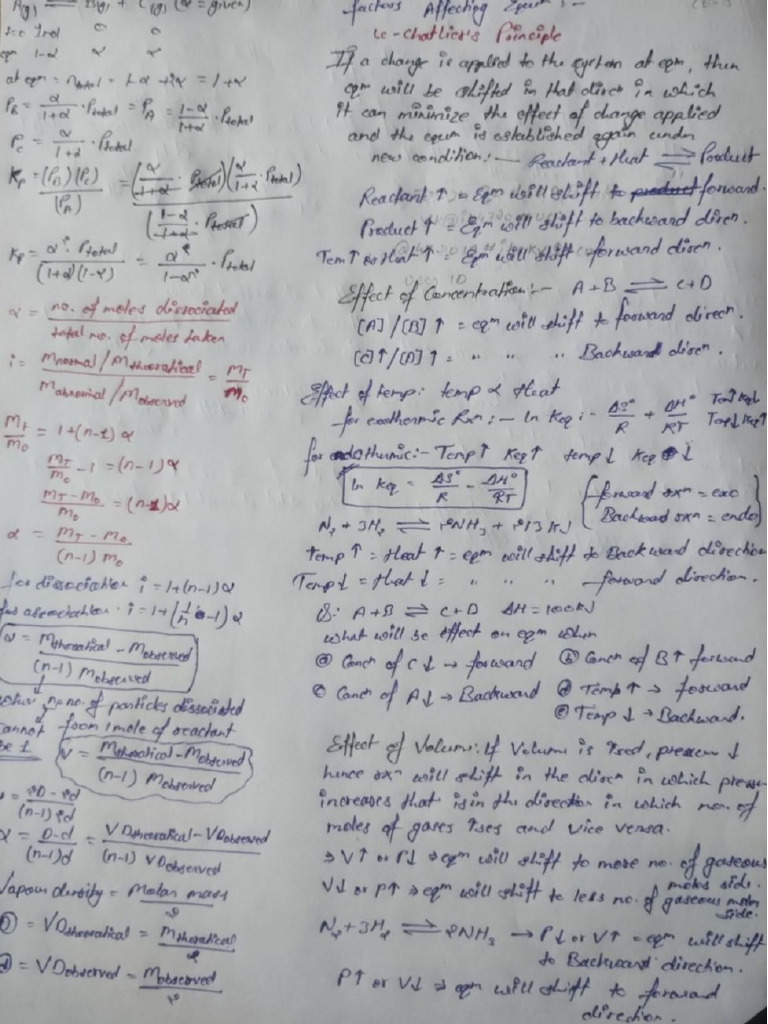 A(g) ⇌ B(g) + C(g) (α = given)
t=0 1mol 0 0
eqm 1-α α α
at eqm = ntotal = 1-α + 2α = 1+α
PB = α/1+α · Ptotal = PA = 1-α/1+α · Ptotal
PC = α/1+α · Ptotal
KP = (PB)(PC)/(PA) = (α/1+α · Ptotal)(α/1+α · Ptotal)/(1-α/1+α · Ptotal)
KP = α² · Ptotal/(1+α)(1-α) = α²/1-α² · Ptotal
α = no. of moles dissociated/total no. of moles taken
i = Mnormal/Mtheoratical/Mabnormal/Mobserved = MT/Mo
MT/Mo = 1+(n-1)α
MT/Mo - 1 = (n-1)α
MT-Mo/Mo = (n-1)α
α = MT-Mo/(n-1)Mo
for dissociation i = 1+(n-1)α
for association · i = 1+(1/n-1)α
α = Mtheoratical - Mobserved/(n-1) Mobserved
no. of particles dissociated
cannot from 1 mole of reactant
be 1 α = Mtheoratical - Mobserved/(n-1) Mobserved
α = 2D-2d/(n-1)2d
α = D-d/(n-1)d = VDtheoratical - VDobserved/(n-1) VDobserved
Vapour density = Molar mass/2
D = VDtheoratical = Mtheoratical/2
d = VDobserved = Mobserved/2
factors Affecting Eqm :-
Le-Chatlier's Principle
If a change is applied to the system at eqm, then
eqm will be shifted in that diren in which
it can minimize the effect of change applied
and the eqm is established again under
new condition :- Reactant + Heat ⇌ Product
Reactant ↑ = Eqm will shift to product forward.
Product ↑ = Eqm will shift to backward diren.
Tem ↑ or Heat ↑ = Eqm will shift forward diren.
Effect of Concentration :- A+B ⇌ C+D
[A]/[B] ↑ = eqm will shift to forward diren.
[C]↑/[D]↑ = " " " Backward diren.
Effect of temp: temp ∝ Heat
for exothermic Rxn :- ln Keq :- ΔS°/R + ΔH°/RT Tem↑ Keq↓
Tem↓ Keq↑
for endothermic :- Temp ↑ Keq ↑ temp ↓ Keq ↓
ln Keq = ΔS°/R - ΔH°/RT
{forward rxn = exo
Backward rxn = endo}
N2 + 3H2 ⇌ 2NH3 + 213 KJ
Temp ↑ = Heat ↑ = eqm will shift to Backward direction
Temp ↓ = Heat ↓ = " " " forward direction.
Q: A+B ⇌ C+D ΔH = 100KJ
what will be effect on eqm when
ⓐ Concn of C ↓ → forward ⓑ Concn of B ↑ forward
ⓒ Concn of A ↓ → Backward ⓓ Temp ↑ → forward
ⓔ Temp ↓ → Backward.
Effect of Volume: If Volume is ↑sed, pressure ↓
hence rxn will shift in the diren in which
increases that is in the direction in which no. of
moles of gases ↑ses and vice versa.
⇒ V↑ or P↓ ⇒ eqm will shift to more no. of gaseous
moles side.
V↓ or P↑ ⇒ eqm will shift to less no. of gaseous moles
side.
N2 + 3H2 ⇌ 2NH3 → P↓ or V↑ = eqm will shift
to Backward direction.
P↑ or V↓ ⇒ eqm will shift to forward
direction.